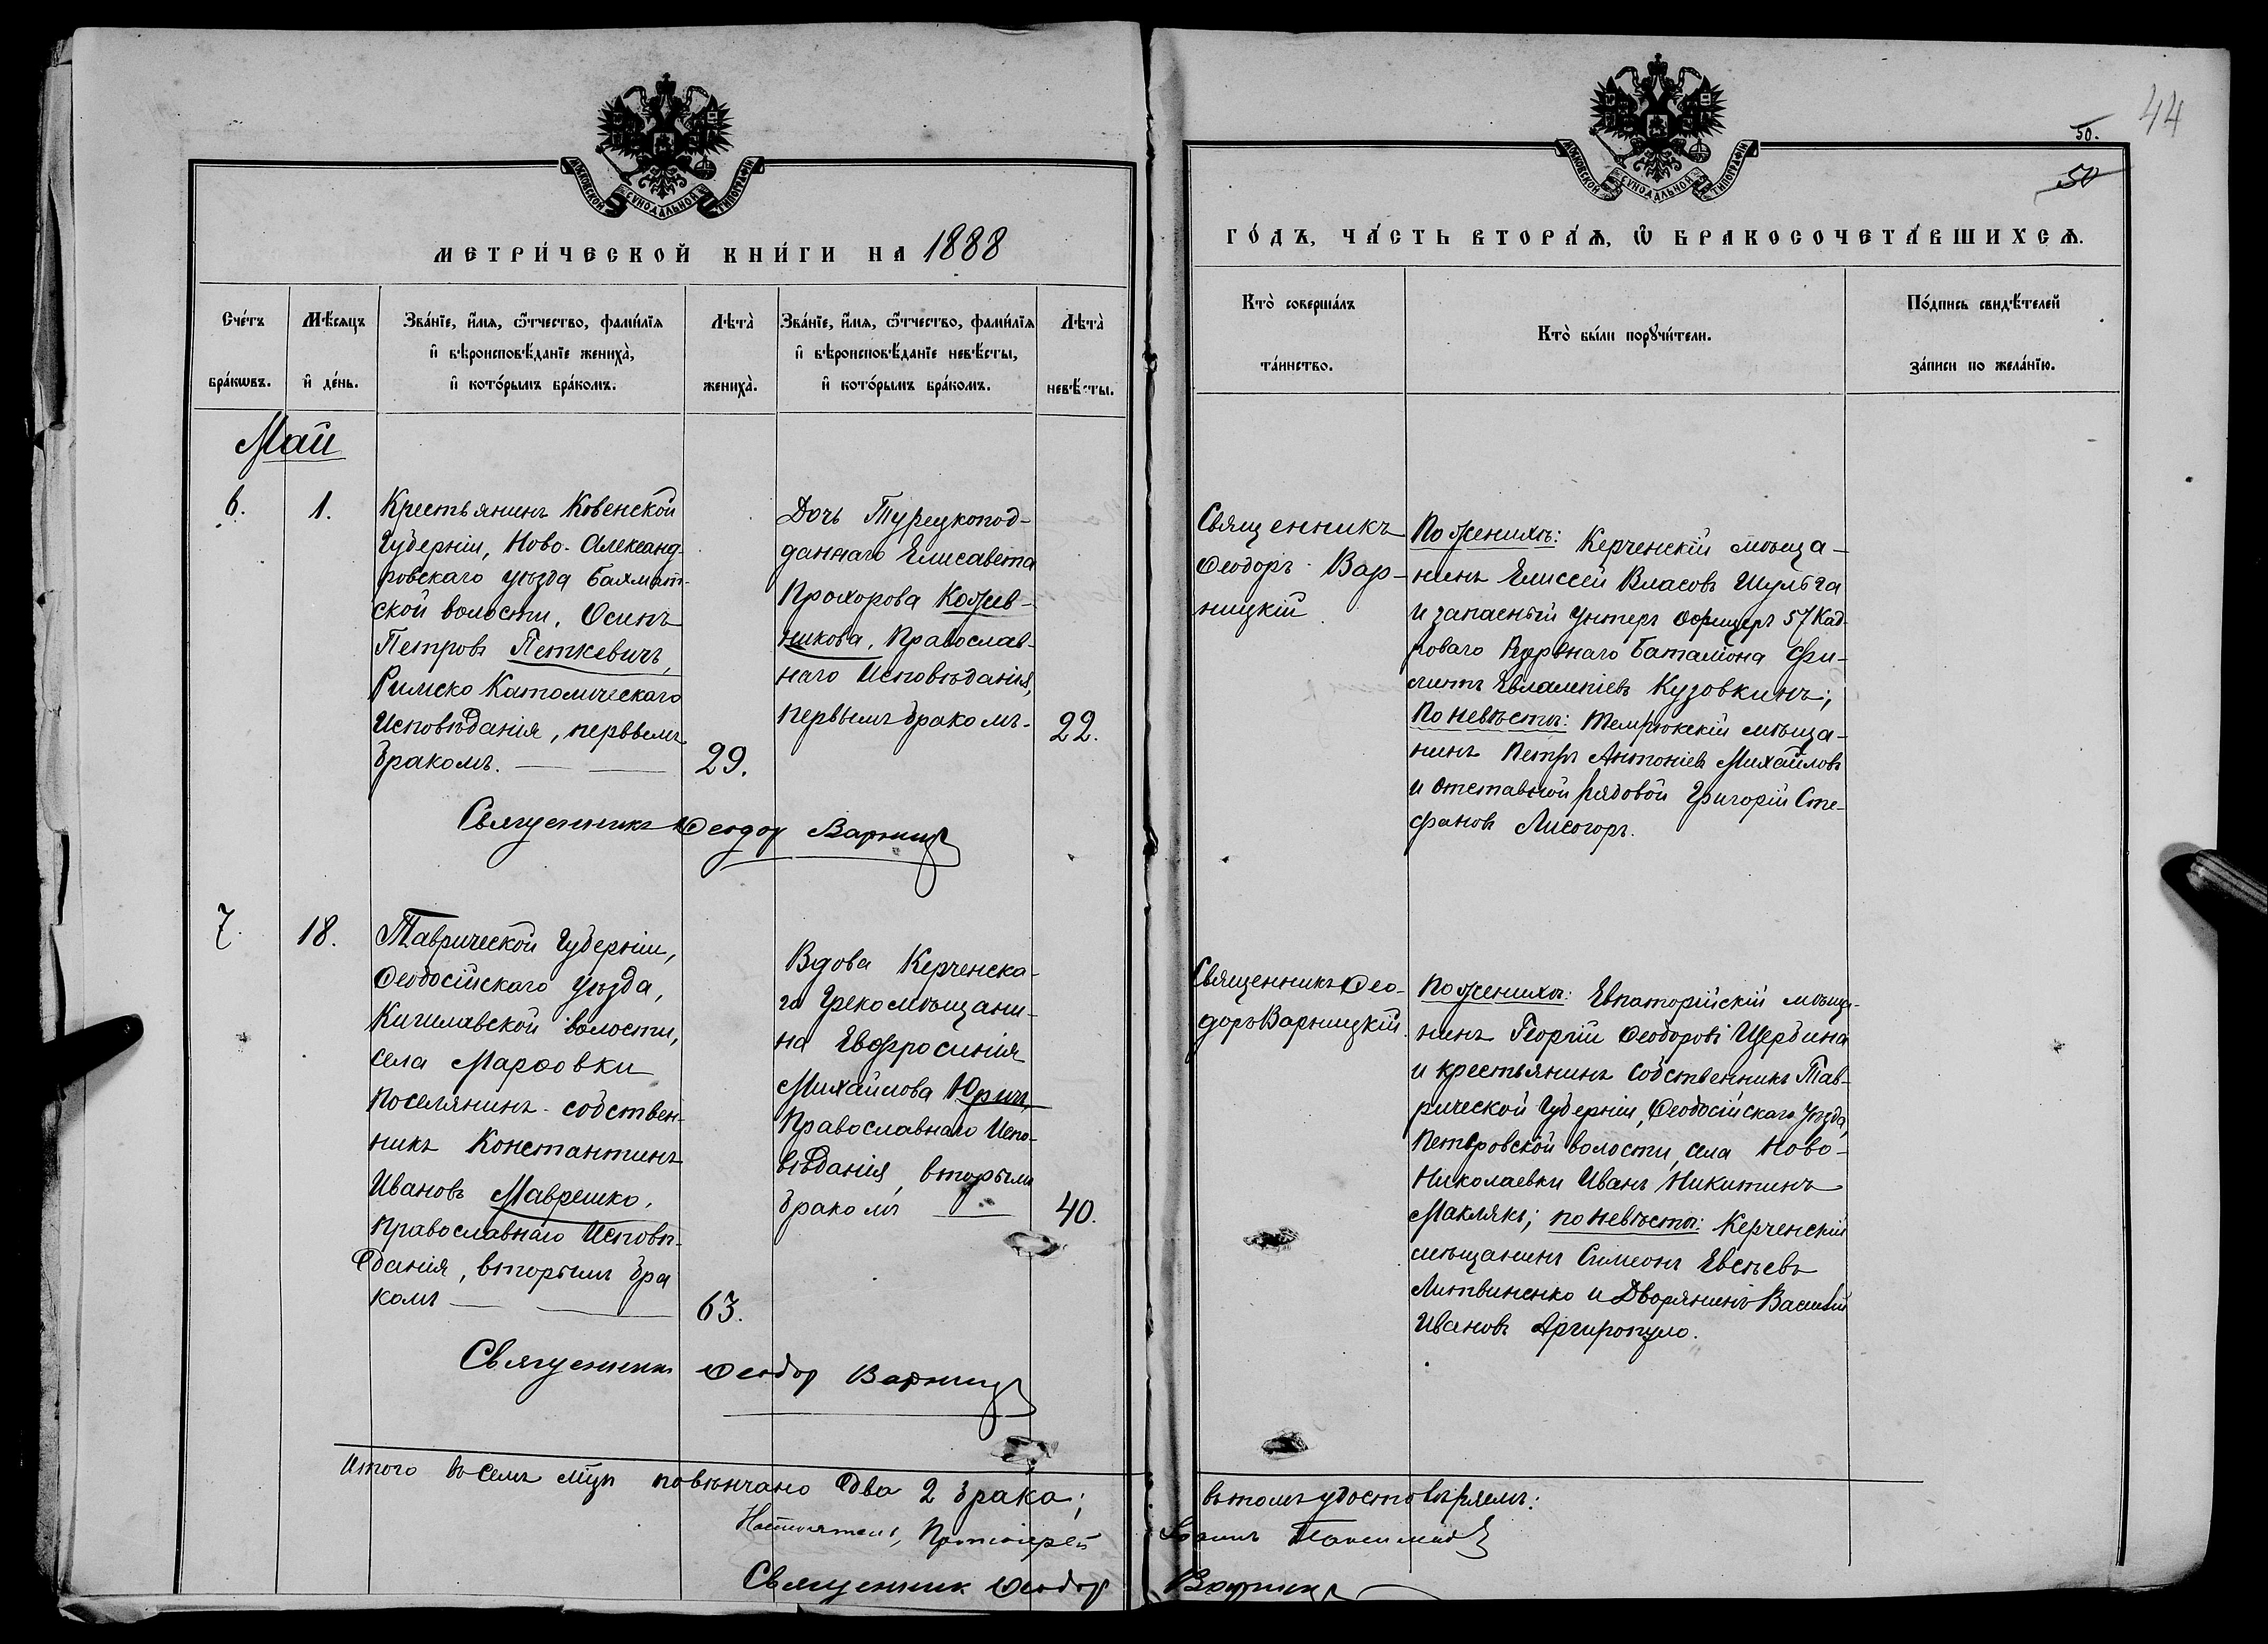 44
50.
50
МОСКОВСКОЙ СѴНОДАЛЬНОЙ ТИПОГРАФІИ
МЕТРИ́ЧЕСКОЙ КНИ́ГИ НА 1888
Сче́тъ бра́кѡвъ.
Мѣ́сяцъ и҆ де́нь.
Зва́нїе, и҆́мѧ, ѻ҆́тчество, фами́лїѧ
и҆ вѣроисповѣ́данїе жениха̀,
и҆ кото́рымъ бра́комъ.
Лѣта̀ жениха̀.
Зва́нїе, и҆́мѧ, ѻ҆́тчество, фами́лїѧ
и҆ вѣроисповѣ́данїе невѣ́сты,
и҆ кото́рымъ бра́комъ.
Лѣта̀ невѣ́сты.
Май
6.
1.
Крестьянинъ Ковенской
Губерніи, Ново-Александ-
ровскаго уѣзда
ской волости, Осипъ
Петровъ Петкевичъ,
Римско Католическаго
Исповѣданія, первымъ
бракомъ.
29.
Дочь Турецкопод-
даннаго Елисавета
Прохорова Кожев-
никова, Православ-
наго Исповѣданія,
первымъ бракомъ.
22.
Священникъ Ѳеодор Варниц
7.
18.
Таврической Губерніи,
Ѳеодосійскаго уѣзда,
волости,
села Марѳовки
поселянинъ-собствен-
никъ Константинъ
Ивановъ Маврешко,
Православнаго Исповѣ-
данія, вторымъ бра
комъ
63.
Вдова Керченска-
го Грекомѣщани-
на Евфросинія
Михайлова Юричъ,
Православнаго Испо-
вѣданія, вторымъ
бракомъ
40.
Священникъ Ѳеодор Варниц
Итого въ семъ мѣсяцѣ повѣнчано два 2 брака;
Настоятель, Протоіерей
Священник Ѳеодор
МОСКОВСКОЙ СѴНОДАЛЬНОЙ ТИПОГРАФІИ
ГО́ДЪ, ЧА́СТЬ ВТОРА́Ѧ, Ѽ БРАКОСОЧЕТА́ВШИХСѦ.
Кто̀ соверша́лъ
та́инство.
Кто̀ бы́ли порꙋчи́тели.
По́дпись свидѣ́телей
за́писи по жела́нїю.
Священникъ
Ѳеодоръ Вар-
ницкій
По женихѣ: Керченскій мѣща-
нинъ Елисей Власовъ Шульга
и запасный унтеръ офицеръ 57 Кад-
роваго Резервнаго Баталіона Фи-
липъ Евлампіевъ Кузовкинъ;
По невѣстѣ: Темрюкскій мѣща-
нинъ Петръ Антоніевъ Михайловъ
и отставной рядовой Григорій Сте-
фановъ Лисогоръ.
Священникъ Ѳео-
доръ Варницкій.
По женихѣ: Евпаторійскій мѣща-
нинъ Георгій Ѳеодоровъ Щербина
и крестьянинъ собственникъ Тав-
рической Губерніи, Ѳеодосійскаго уѣзда,
Петровской волости, села Ново-
Николаевки Иванъ Никитинъ
Маклякъ; по невѣстѣ: Керченскій
мѣщанинъ Симеонъ Евсѣевъ
Литвиненко и Дворянинъ Василій
Ивановъ Аргиропуло.
въ томъ удостовѣряемъ:
Варниц